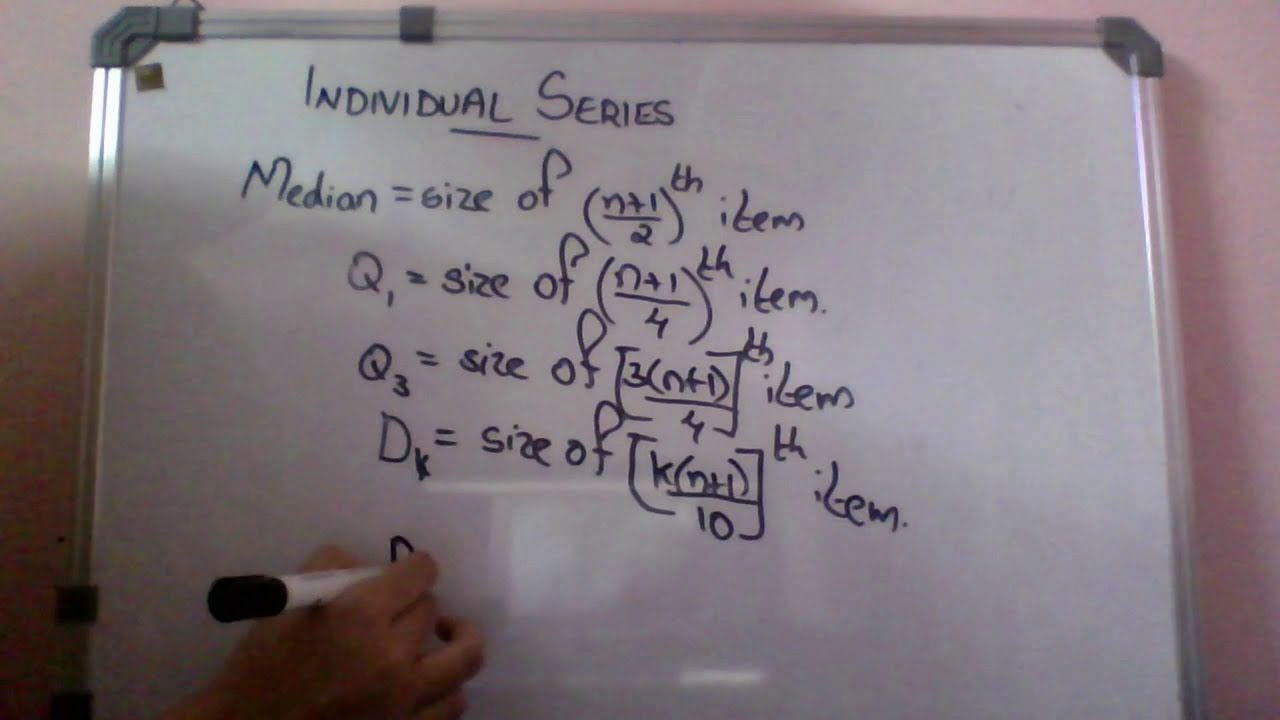 INDIVIDUAL SERIES
Median = size of (n+1/2)th item
Q1 = size of (n+1/4)th item.
Q3 = size of [3(n+1)/4]th item
Dk = size of [k(n+1)/10]th item.